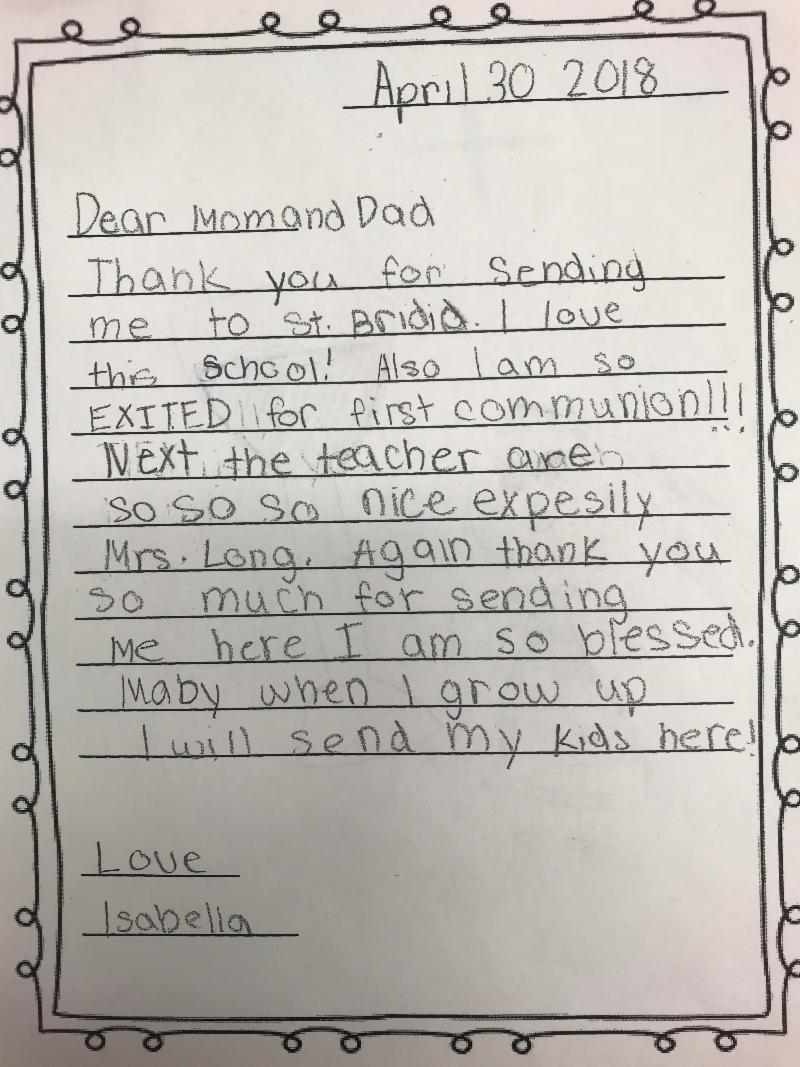 April 30 2018
Dear Mom and Dad
Thank you for Sending
me to St. Bridid. I love
this school! Also I am so
EXITED for first communion!!!
Next the teacher are
so so so nice expesily
Mrs. Long. Again thank you
so much for sending
me here I am so blessed.
Maby when I grow up
I will send my kids here!
Love
Isabella